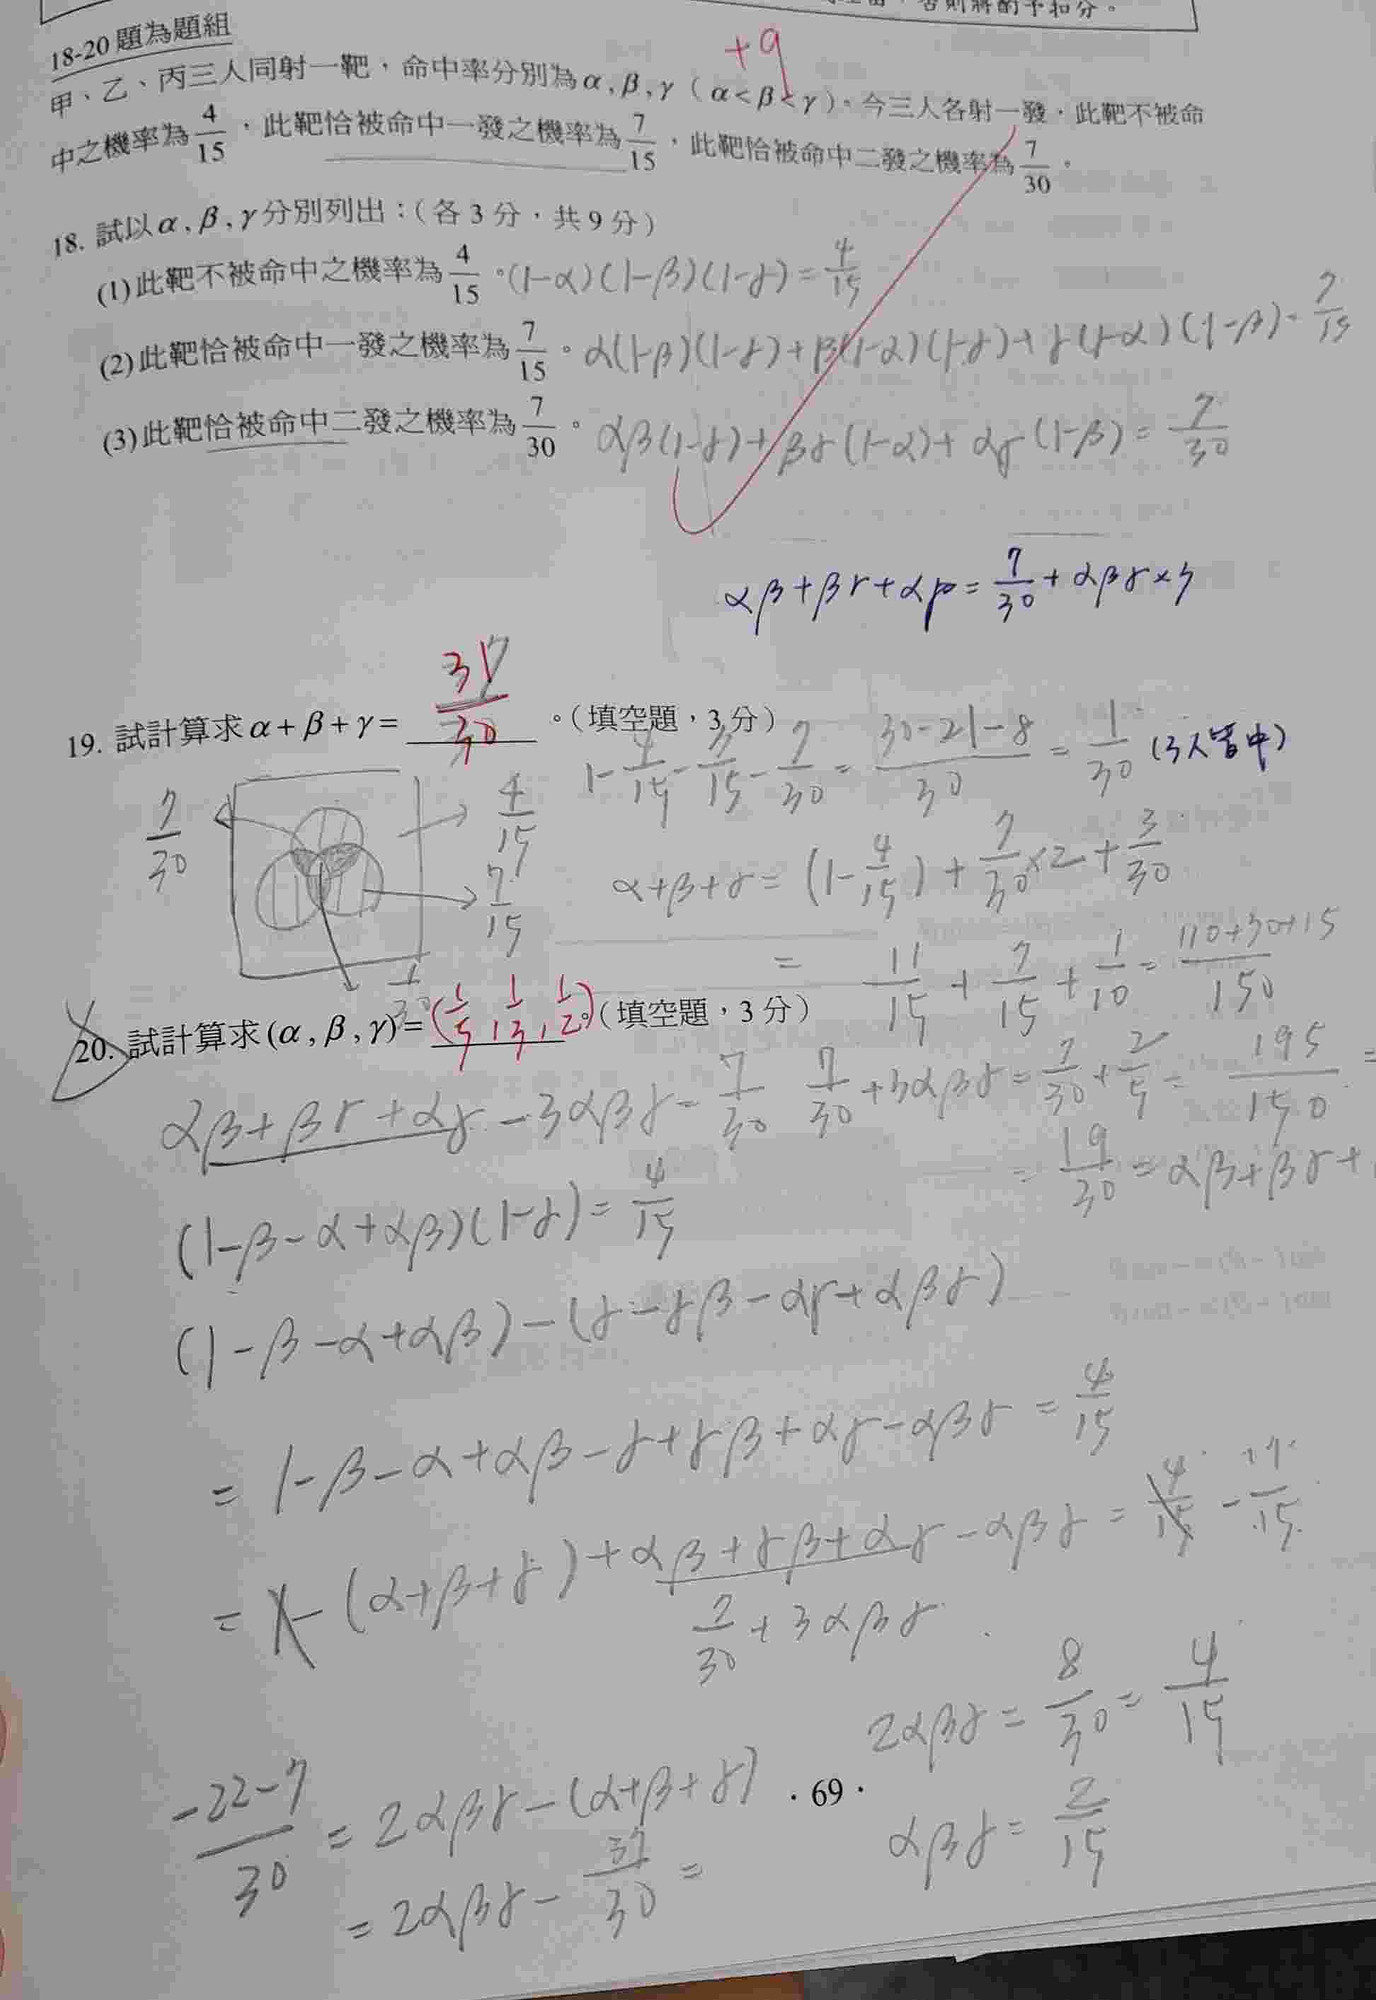 否則將酌予扣分。
18-20題為題組
+9
甲、乙、丙三人同射一靶，命中率分別為α,β,γ（α<β<γ）。今三人各射一發，此靶不被命
中之機率為4/15，此靶恰被命中一發之機率為7/15，此靶恰被命中二發之機率為7/30。
18. 試以α,β,γ分別列出：（各3分，共9分）
(1)此靶不被命中之機率為4/15。(1-α)(1-β)(1-γ)=4/15
(2)此靶恰被命中一發之機率為7/15。α(1-β)(1-γ)+β(1-α)(1-γ)+γ(1-α)(1-β)=7/15
(3)此靶恰被命中二發之機率為7/30。αβ(1-γ)+βγ(1-α)+αγ(1-β)=7/30
αβ+βγ+αγ=7/30+αβγ×3
19. 試計算求α+β+γ=31/30。（填空題，3分）
1-4/15-7/15-7/30=30-21-8/30=1/30 (3人皆中)
7/30
4/15
7/15
1/30
α+β+γ=(1-4/15)+7/30×2+3/30
=11/15+7/15+1/10=110+70+15/150
20. 試計算求(α,β,γ)=(1/5,1/3,1/2)。（填空題，3分）
195/150=
αβ+βγ+αγ-3αβγ=7/30
7/30+3αβγ=7/30+2/5=
=19/30=αβ+βγ+
(1-β-α+αβ)(1-γ)=4/15
(1-β-α+αβ)-(γ-γβ-αγ+αβγ)
=1-β-α+αβ-γ+γβ+αγ-αβγ=4/15
=1-(α+β+γ)+αβ+γβ+αγ-αβγ=4/15-11/15
7/30+3αβγ
2αβγ=8/30=4/15
-22-7/30=2αβγ-(α+β+γ)
·69·
αβγ=2/15
=2αβγ-37/30=